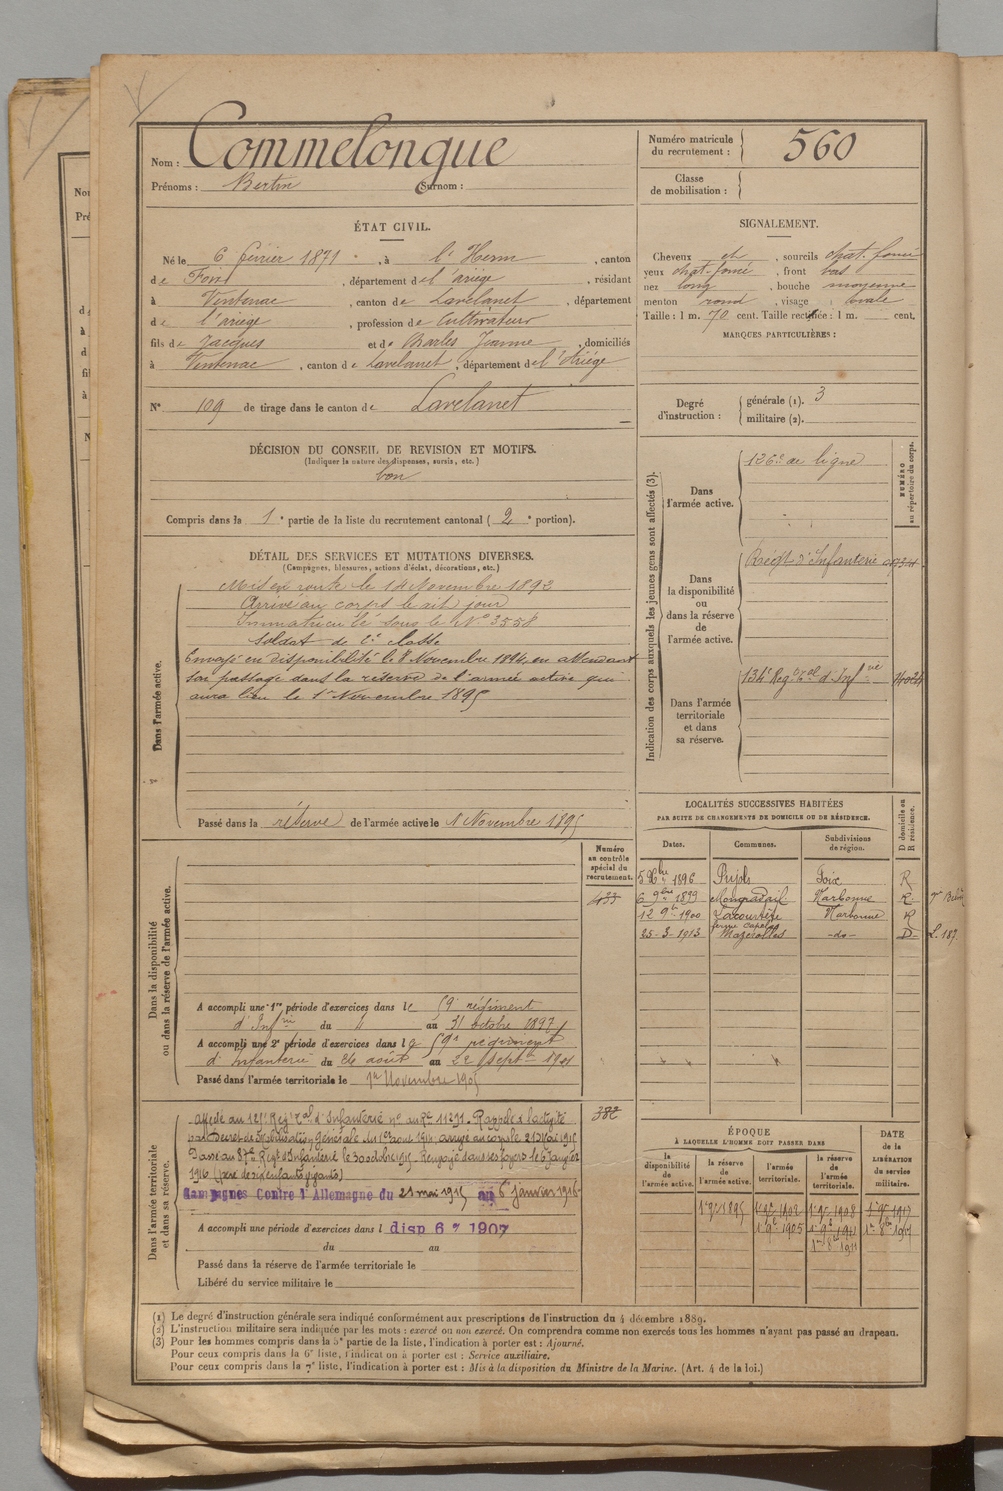 Nom : Commelongue
Prénoms : Bertin Surnom :
Numéro matricule du recrutement : 560
Classe de mobilisation :
ÉTAT CIVIL.
Né le 6 février 1871, à l'Herm, canton
de Foix, département de l'ariège, résidant
à Ventenac, canton de Lavelanet, département
de l'ariège, profession de Cultivateur
fils de Jacques et de Barles Jeanne, domiciliés
à Ventenac, canton de Lavelanet, département de l'Ariége
N° 109 de tirage dans le canton de Lavelanet
SIGNALEMENT.
Cheveux ch, sourcils chat. foncé
yeux chat-foncé, front bas
nez long, bouche moyenne
menton rond, visage ovale
Taille : 1 m. 70 cent. Taille rectifiée : 1 m. cent.
MARQUES PARTICULIÈRES :
Degré d'instruction : générale (1). 3
militaire (2).
DÉCISION DU CONSEIL DE REVISION ET MOTIFS.
(Indiquer la nature des dispenses, sursis, etc.)
bon
Compris dans la 1e partie de la liste du recrutement cantonal (2e portion).
DÉTAIL DES SERVICES ET MUTATIONS DIVERSES.
(Campagnes, blessures, actions d'éclat, décorations, etc.)
Dans l'armée active.
Mis en route le 14 Novembre 1892
Arrivé au corps le dit jour
Immatriculé sous le N° 3558
Soldat de 2e classe
Envoyé en disponibilité le 8 Novembre 1894, en attendant
son passage dans la réserve de l'armée active qui
aura lieu le 1er Novembre 1895
Passé dans la réserve de l'armée active le 1 Novembre 1895
Indication des corps auxquels les jeunes gens sont affectés (3).
NUMÉRO au répertoire du corps.
Dans l'armée active.
126e de ligne
Dans la disponibilité ou dans la réserve de l'armée active.
Régt d'Infanterie
Dans l'armée territoriale et dans sa réserve.
134e Regt Tal d'Infie
LOCALITÉS SUCCESSIVES HABITÉES
PAR SUITE DE CHANGEMENTS DE DOMICILE OU DE RÉSIDENCE.
Dates. Communes. Subdivisions de région. D domicile ou R résidence.
5 Xbre 1896 Pujols Foix R
6 9bre 1899 Narbonne R
12 9bre 1900 Lacourtète Narbonne R
25-3-1913 Mazerolles -do- D
Numéro au contrôle spécial du recrutement.
433
Dans la disponibilité ou dans la réserve de l'armée active.
A accompli une 1re période d'exercices dans le 59e régiment
d'Infie du 4 au 31 octobre 1897
A accompli une 2e période d'exercices dans le 59e régiment
d'Infanterie du 26 août au 22 septe 1901
Passé dans l'armée territoriale le 1er Novembre 1905
382
Dans l'armée territoriale et dans sa réserve.
Rappelé à l'activité
par Décret de Mobilisation Générale du 1er aout 1914, arrivé au corps le 21 Mai 1915
Passé au 87e Régt d'Infanterie le 30 octobre 1915. Renvoyé dans ses foyers le 6 Janvier
1916 (père de six enfants vivants)
Campagnes Contre l'Allemagne du 21 mai 1915 au 6 janvier 1916
A accompli une période d'exercices dans l disp 6 7 1907
du au
Passé dans la réserve de l'armée territoriale le
Libéré du service militaire le
ÉPOQUE
À LAQUELLE L'HOMME DOIT PASSER DANS
DATE de la LIBÉRATION du service militaire.
la disponibilité de l'armée active. la réserve de l'armée active. l'armée territoriale. la réserve de l'armée territoriale.
1 9e 1895
(1) Le degré d'instruction générale sera indiqué conformément aux prescriptions de l'instruction du 4 décembre 1889.
(2) L'instruction militaire sera indiquée par les mots : exercé ou non exercé. On comprendra comme non exercés tous les hommes n'ayant pas passé au drapeau.
(3) Pour les hommes compris dans la 5e partie de la liste, l'indication à porter est : Ajourné.
Pour ceux compris dans la 6e liste, l'indication à porter est : Service auxiliaire.
Pour ceux compris dans la 7e liste, l'indication à porter est : Mis à la disposition du Ministre de la Marine. (Art. 4 de la loi.)